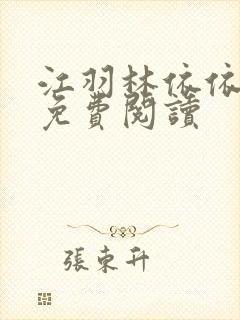 江羽林依依
免費閱讀
張東升